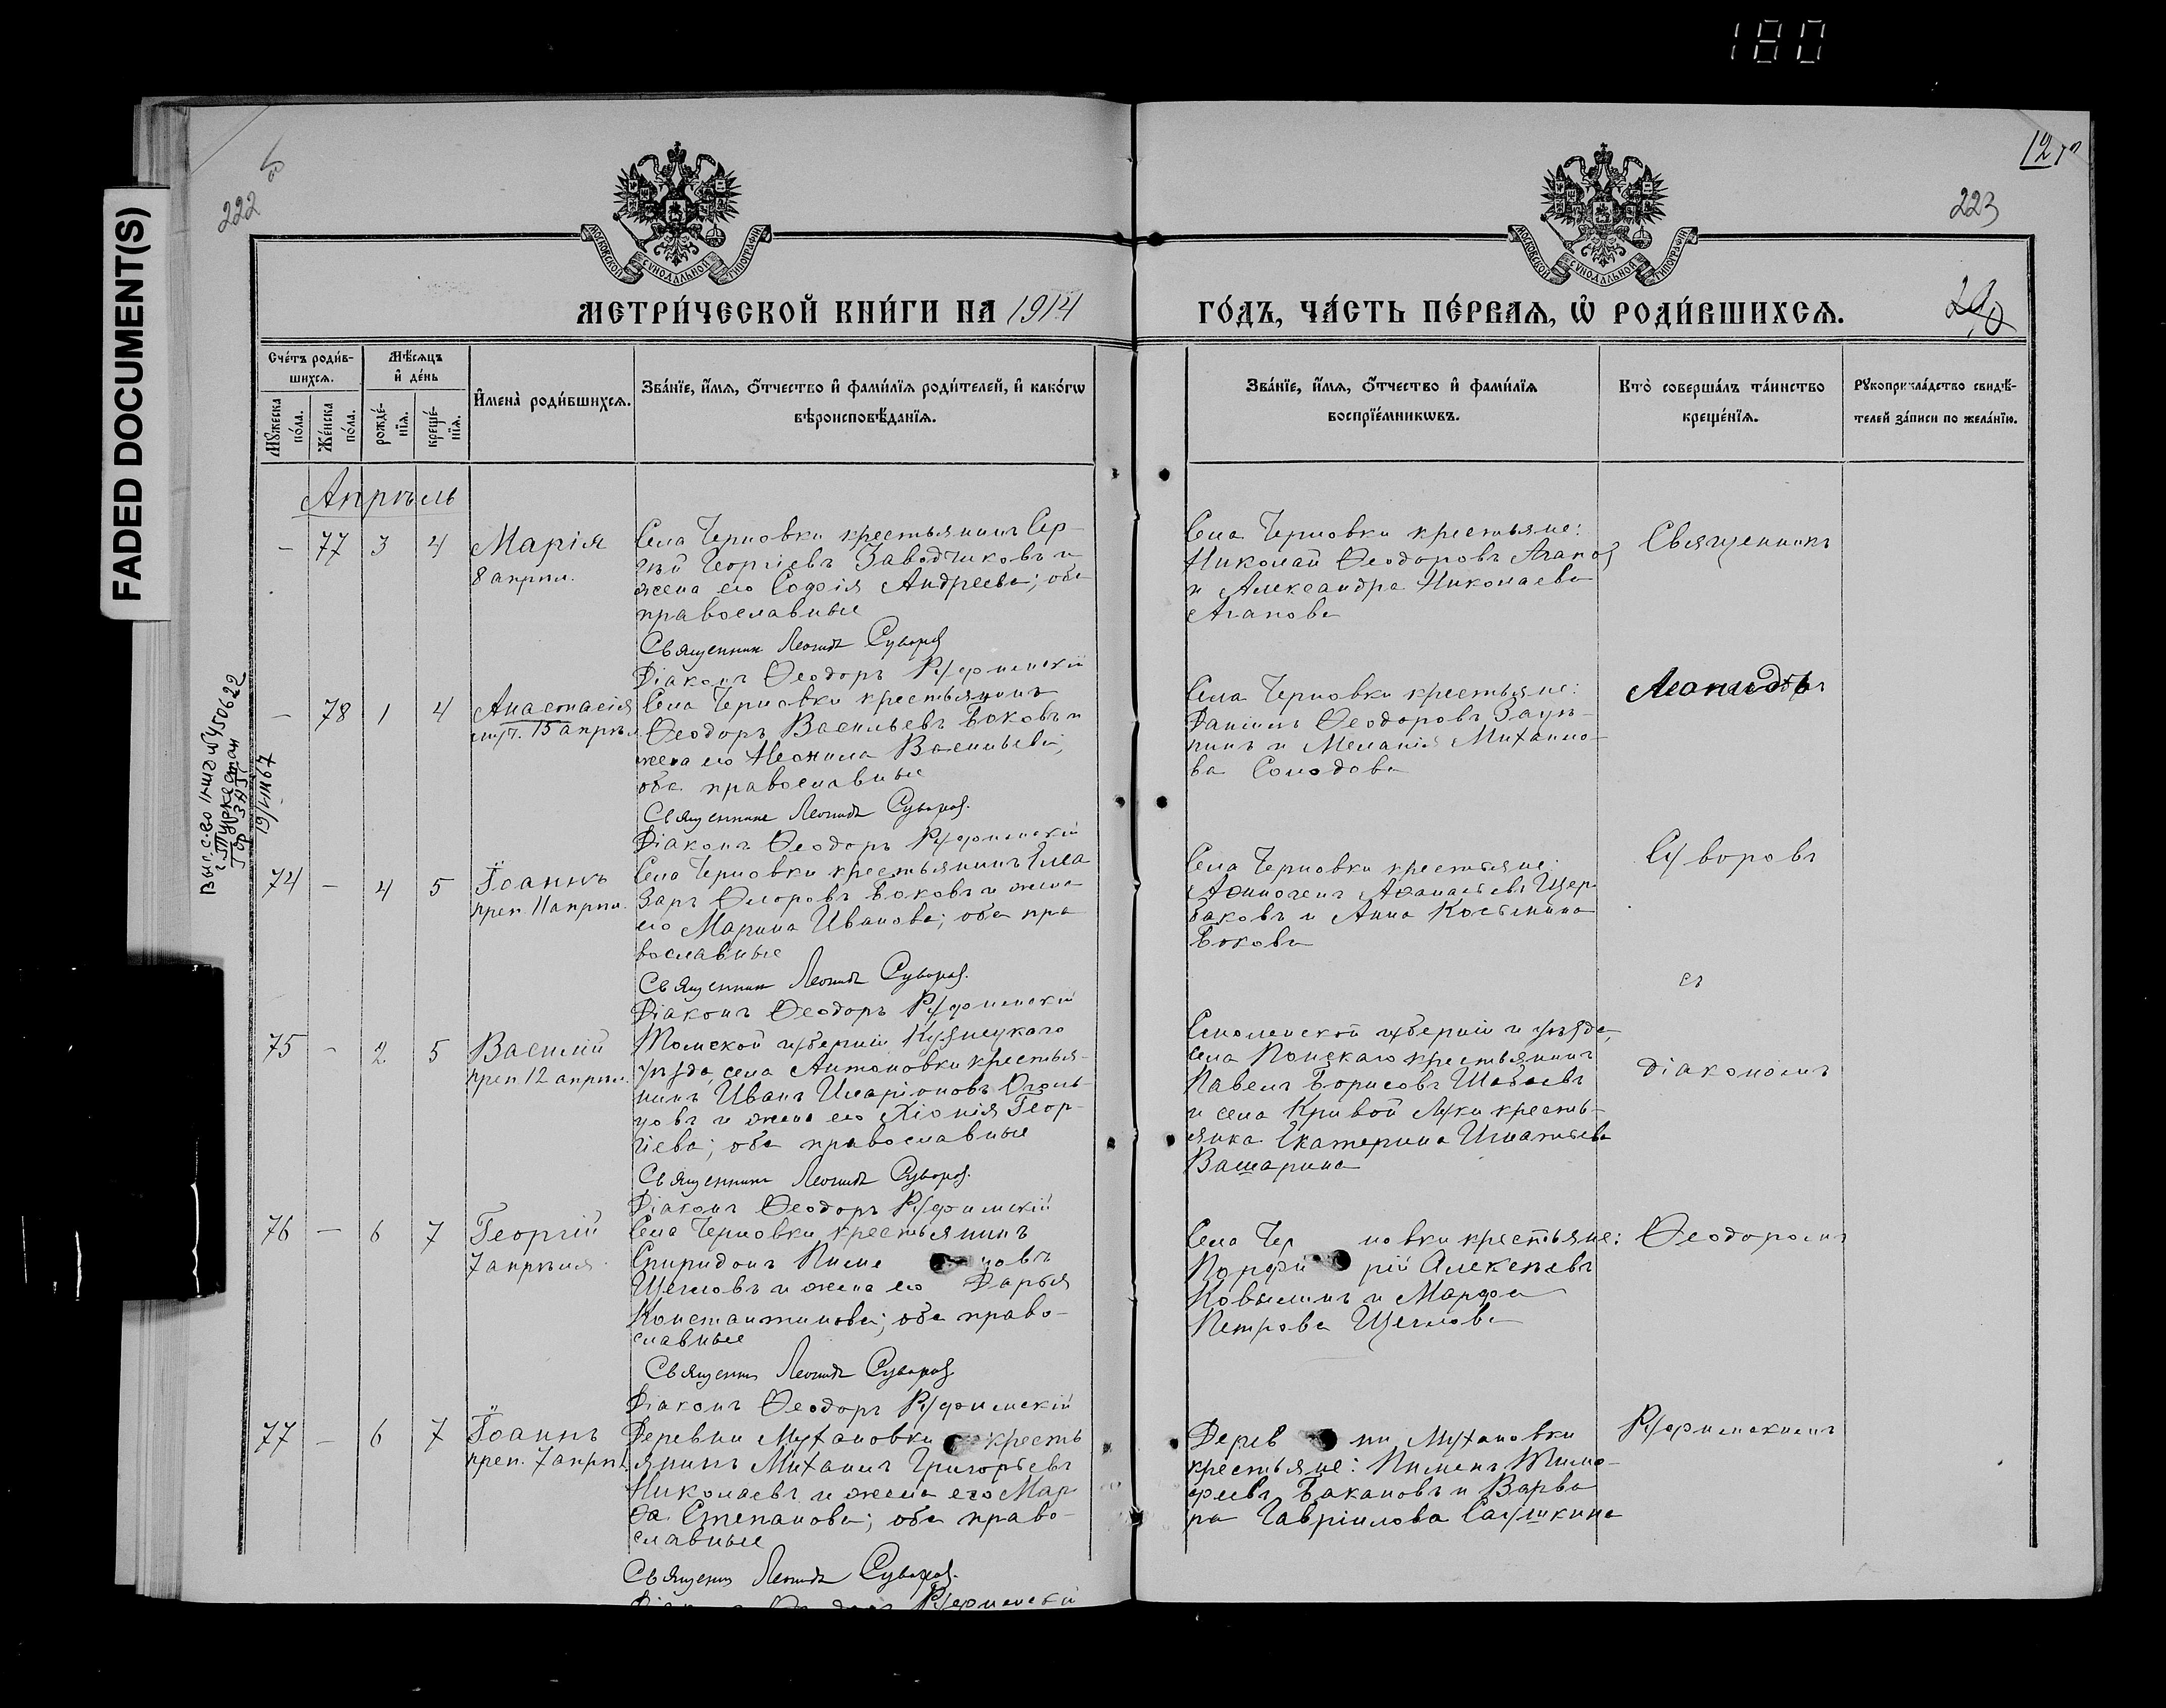 180
FADED DOCUMENT(S)
222
223
МОСКОВСКОЙ СѴНОДАЛЬНОЙ ТИПОГРАФІИ
МОСКОВСКОЙ СѴНОДАЛЬНОЙ ТИПОГРАФІИ
МЕТРИ́ЧЕСКОЙ КНИ́ГИ НА 1914
ГО́ДЪ, ЧА́СТЬ ПЕ́РВАЯ, Ѡ҆ РОДИ́ВШИХСЯ.
Сче́тъ роди́в-
шихся.
Мꙋ́жеска по́ла.
Же́нска по́ла.
Мѣ́сяцъ
и҆ де́нь
рожде́-
нїя.
креще́-
нїя.
И҆мена̀ роди́вшихся.
Зва́нїе, и҆́мя, ѻ҆́тчество и҆ фами́лїя роди́телей, и҆ како́гѡ
вѣроисповѣ́данїя.
Зва́нїе, и҆́мя, ѻ҆́тчество и҆ фами́лїя
воспрїе́мникѡвъ.
Кто̀ соверша́лъ та́инство
креще́нїя.
Рꙋкоприкла́дство свидѣ́-
телей за́писи по жела́нїю.
Апрѣль
– 77 3 4 Марія
8 апрѣл.
Села Черновки крестьянинъ Сер-
гѣй Георгіевъ Заводчиковъ и
жена его Софія Андреева; оба
православные
Священник Леонидъ Суворов
Діаконъ Ѳеодоръ
Села Черновки крестьяне:
Николай Ѳеодоровъ Агапов
и Александра Николаева
Агапова
Священникъ
– 78 1 4 Анастасія
15 апрѣл.
Села Черновки крестьянинъ
Ѳеодоръ Васильевъ Боковъ и
жена его Неонила Васильева;
оба православные
Священник Леонидъ Суворов.
Діаконъ Ѳеодоръ
Села Черновки крестьяне:
Даніилъ Ѳеодоровъ
и Меланія Михайло-
ва Солодова
Леонидъ
г. Туркестан
Гор ЗАГС
74 – 4 5 Іоаннъ
преп. 11 апрѣл.
Села Черновки крестьянинъ Елеа
заръ Боковъ и жена
его Марина Иванова; оба пра
вославные
Священник Леонидъ Суворов.
Діаконъ Ѳеодоръ
Села Черновки крестьяне:
Аѳанасьевъ Щер-
баковъ и Анна Косьмина
Бокова
Суворовъ
съ
75 – 2 5 Василій
преп. 12 апрѣл.
Томской губерніи Кузнецкаго
уѣзда, села Антоновки крестья-
нинъ Иванъ Иларіоновъ Огонь-
ковъ и жена его Хіонія Геор-
гіева; оба православные
Священник Леонидъ Суворов.
Діаконъ Ѳеодоръ
Смоленской губерніи и уѣзда,
села крестьянинъ
Павелъ Борисовъ Шабаевъ
и села Кривой Луки кресть-
янка Екатерина Игнатьева
Вашарина
Діакономъ
76 – 6 7 Георгій
7 апрѣля.
Села Черновки крестьянинъ
Спиридонъ Пиме новъ
Щегловъ и жена его Дарья
Константинова; оба право-
славные
Священник Леонидъ Суворов
Діаконъ Ѳеодоръ
Села Чер новки крестьяне:
Порфи рій Алексѣевъ
Ковылинъ и Марфа
Петрова Щеглова
Ѳеодоромъ
77 – 6 7 Іоаннъ
преп. 7 апрѣл.
Деревни Мухановки кресть
янинъ Михаилъ Григорьевъ
Николаевъ и жена его Мар
ѳа Степанова; оба право-
славные
Священник Леонидъ Суворов.
Дерев ни Мухановки
крестьяне: Пименъ Тимо-
феевъ Бакановъ и Варва
ра Гавріилова Саушкина